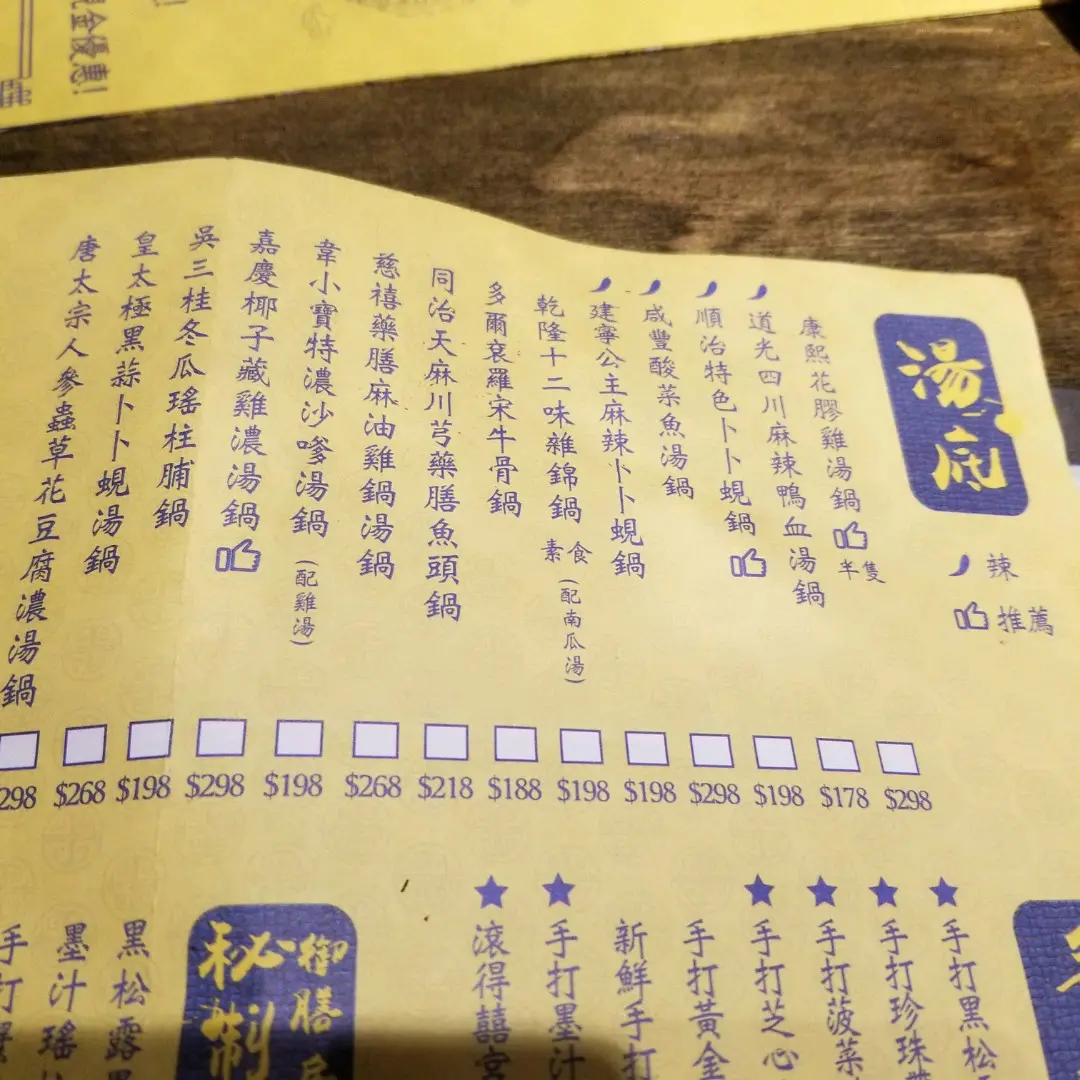 金優惠!
湯底
辣
推薦
康熙花膠雞湯鍋
半隻
$298
道光四川麻辣鴨血湯鍋
$178
順治特色卜卜蜆鍋
$198
咸豐酸菜魚湯鍋
$298
建寧公主麻辣卜卜蜆鍋
$198
乾隆十二味雜錦鍋
素食
(配南瓜湯)
$198
多爾袞羅宋牛骨鍋
$188
同治天麻川芎藥膳魚頭鍋
$218
慈禧藥膳麻油雞鍋湯鍋
$268
韋小寶特濃沙嗲湯鍋
(配雞湯)
$198
嘉慶椰子藏雞濃湯鍋
$298
吳三桂冬瓜瑤柱脯鍋
$198
皇太極黑蒜卜卜蜆湯鍋
$268
唐太宗人參蟲草花豆腐濃湯鍋
298
手打黑松
手打珍珠
手打菠菜
手打芝心
手打黃金
新鮮手打
手打墨汁
滾得囍宮
御膳
秘制
黑松露
墨汁瑤
手打